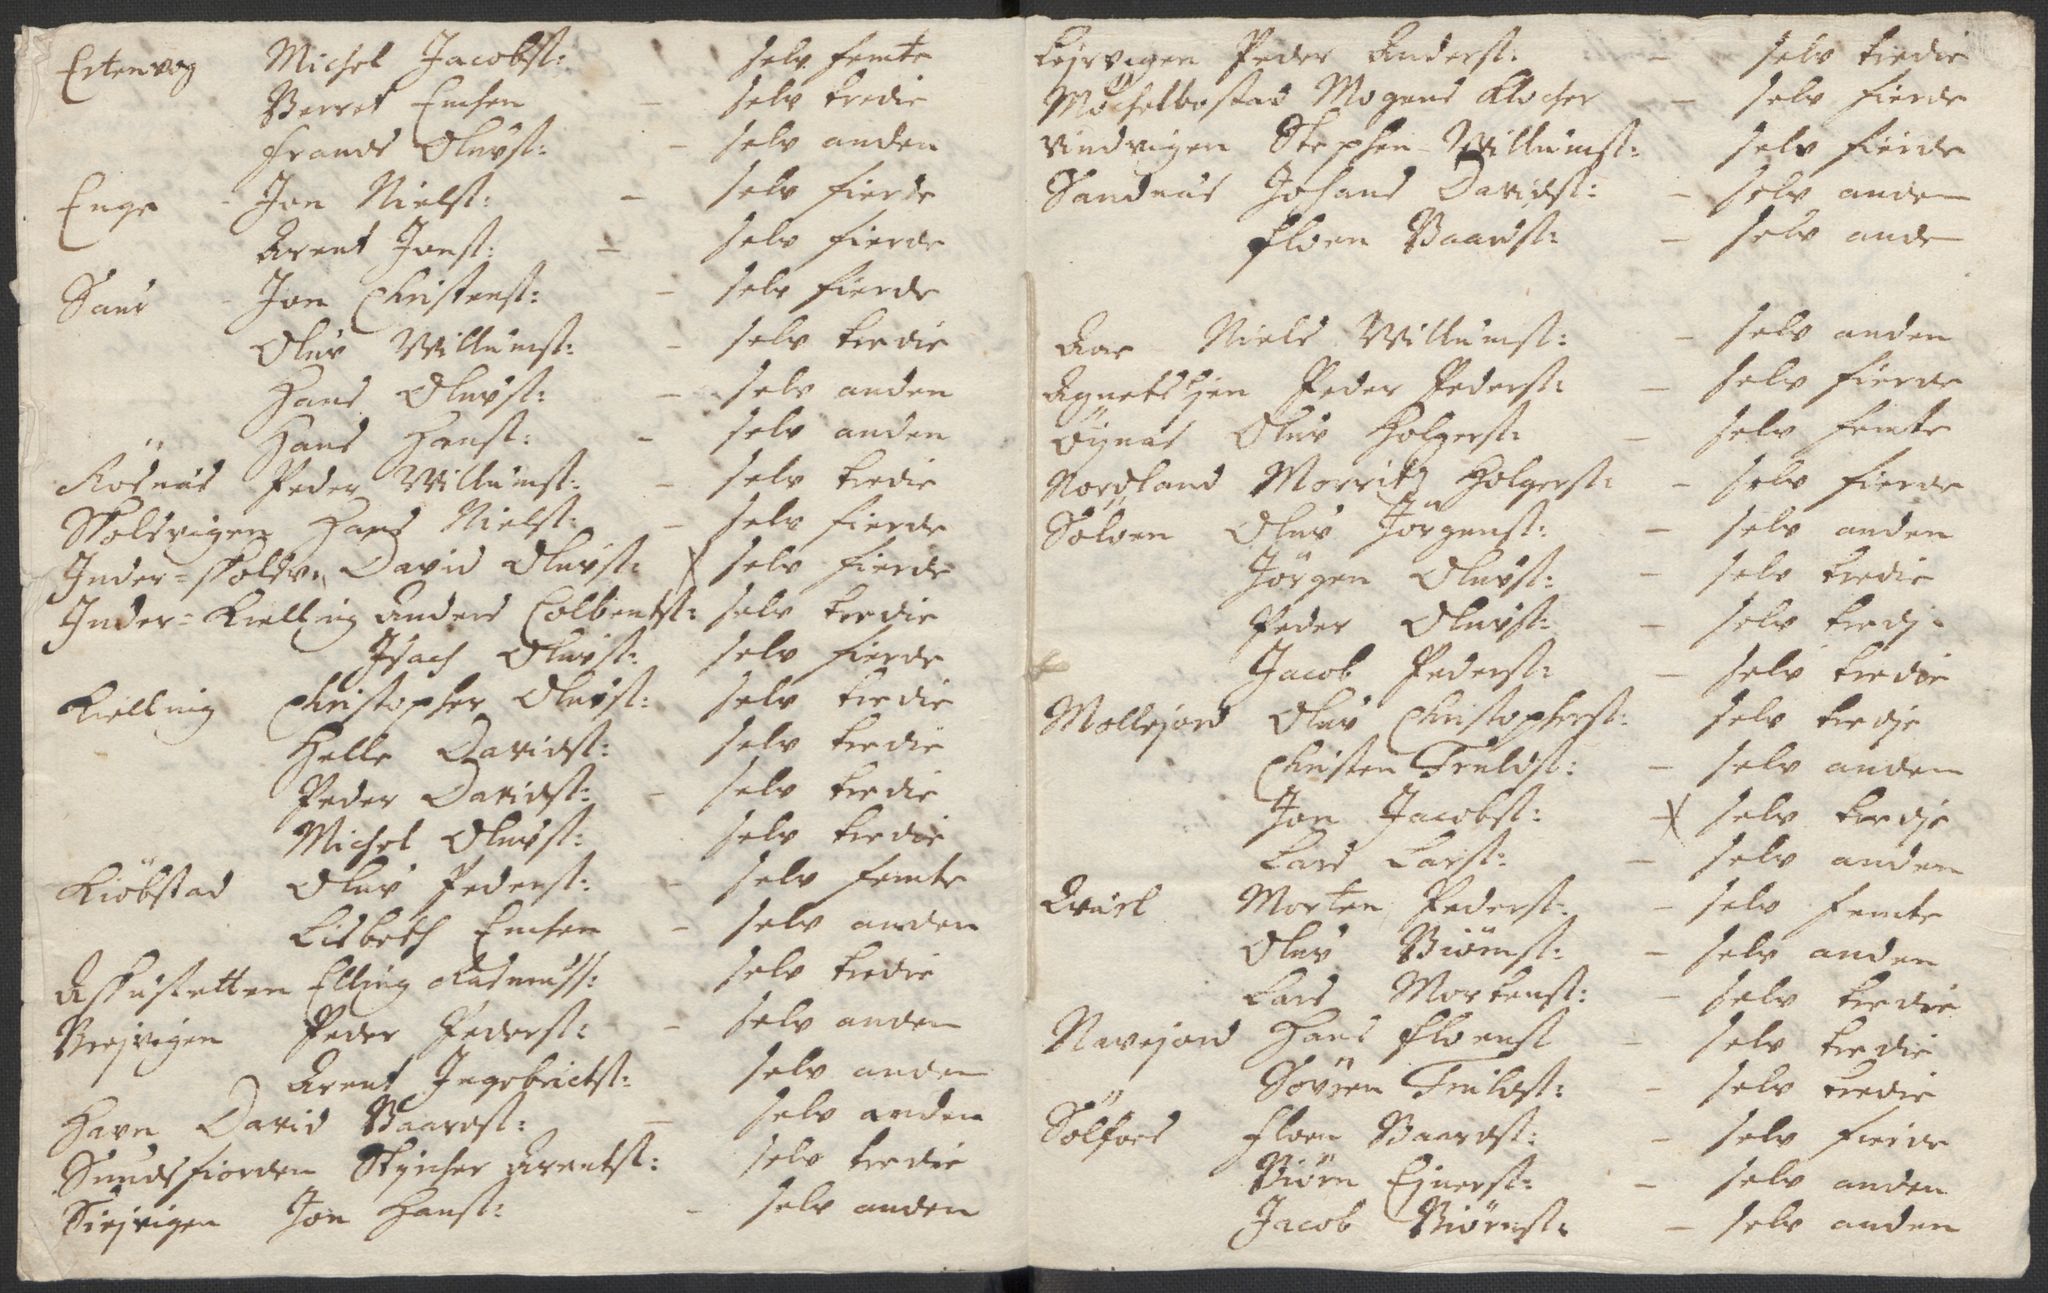 Ertenvog Michel Jacobst: selv femte
Berret Emken - selv tredie
Frands Olufst: - selv anden
Enge - Jon Nielst: - selv fierde
Arent Jonst: - selv fierde
Sand - Jon Christenst: - selv fierde
Oluf Willumst: - selv tredie
Hans Olufst: - selv anden
Hans Hanst: - selv anden
Rösnäs Peder Willumst: - selv tredie
Skolsvigen Hans Nielst: - selv fierde
Inder-skolsv: David Olufst: X selv fierde
Inder-Kielling Anders Colbentst: selv tredie
Isach Olufst: selv fierde
Kielling Christopher Olufst: selv tredie
Helle Davidst: selv tredie
Peder Davidst: - selv tredie
Michel Olufst: selv tredie
Kiöbstad Oluf Pederst: - selv femte
Lisbeth Emken - selv anden
Elling Rasmuss: selv tredie
Brejvigen Peder Pederst: - selv anden
Arent Ingebrictst: selv anden
Havn David Baardst: - selv anden
Sundsfiorden Arentst: selv tredie
Siejvigen Jon Hanst: - selv anden
Lejrvigen Peder Anderst: - selv tredie
Möchelbostad Mogens Klocher - selv fierde
Vindvigen Stephen Willumst: selv fierde
Sandnäs Johans Davidst: - selv anden
Floen Baardst: - selv anden
Aae - Niels Willumst: - selv anden
Peder Pederst: - selv fierde
Öÿnäs Oluf Holgerst: - selv femte
Nordland Morritz Holgerst: - selv fierde
Soloen Oluf Jörgenst: - selv anden
Jörgen Olufst: - selv tredie
Peder Olufst: - selv tredj.
Jacob Pederst: - selv tredie
Mollejord Oluf Christopherst: selv tredje
Christen Truldst: - selv anden
Jon Jacobst: X selv tredje
Lars Larst: - selv anden
Qväel Morten Pederst: - selv femte
Oluf Biörnst: - selv anden
Lars Mortenst: - selv tredie
Navejord Hans Floenst - selv tredie
Sövren Truldst: - selv tredie
Sölfoes Floen Baardst: - selv fierde
Biörn Ejnerst: - selv anden
Jacob Biörnst: - selv anden